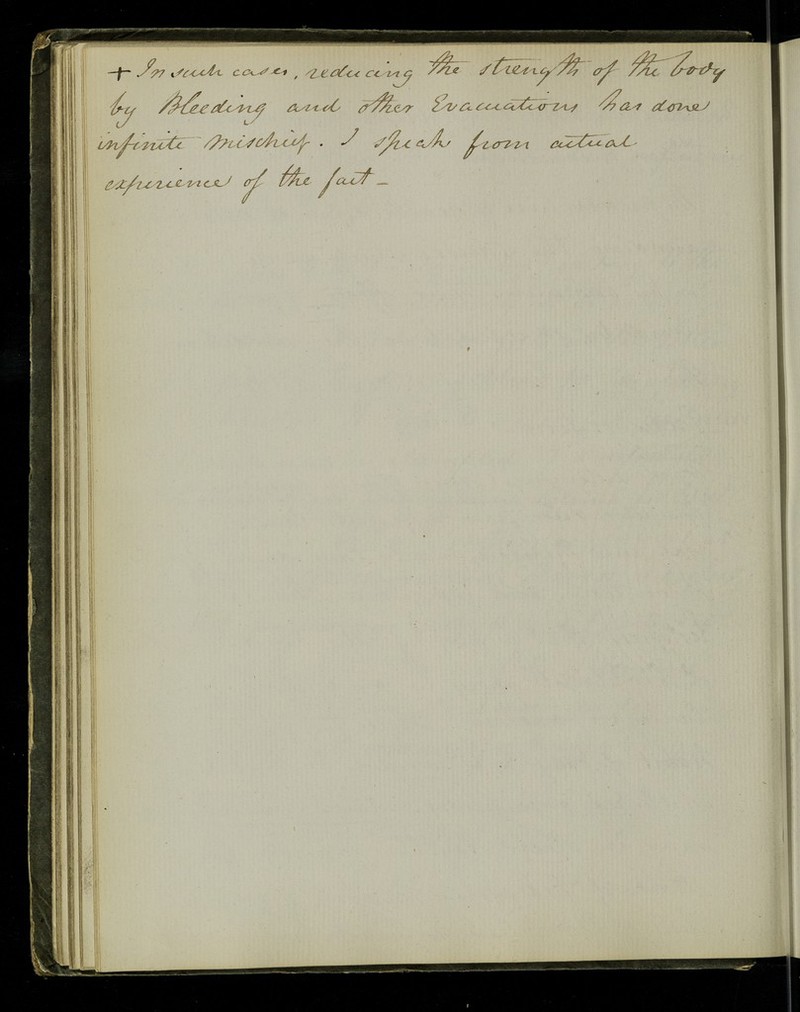 + In such cases, reducing the strength of the body
by Bleeding and other Evacuations has done
infinite Mischief. I speak from actual
experience of the fact –